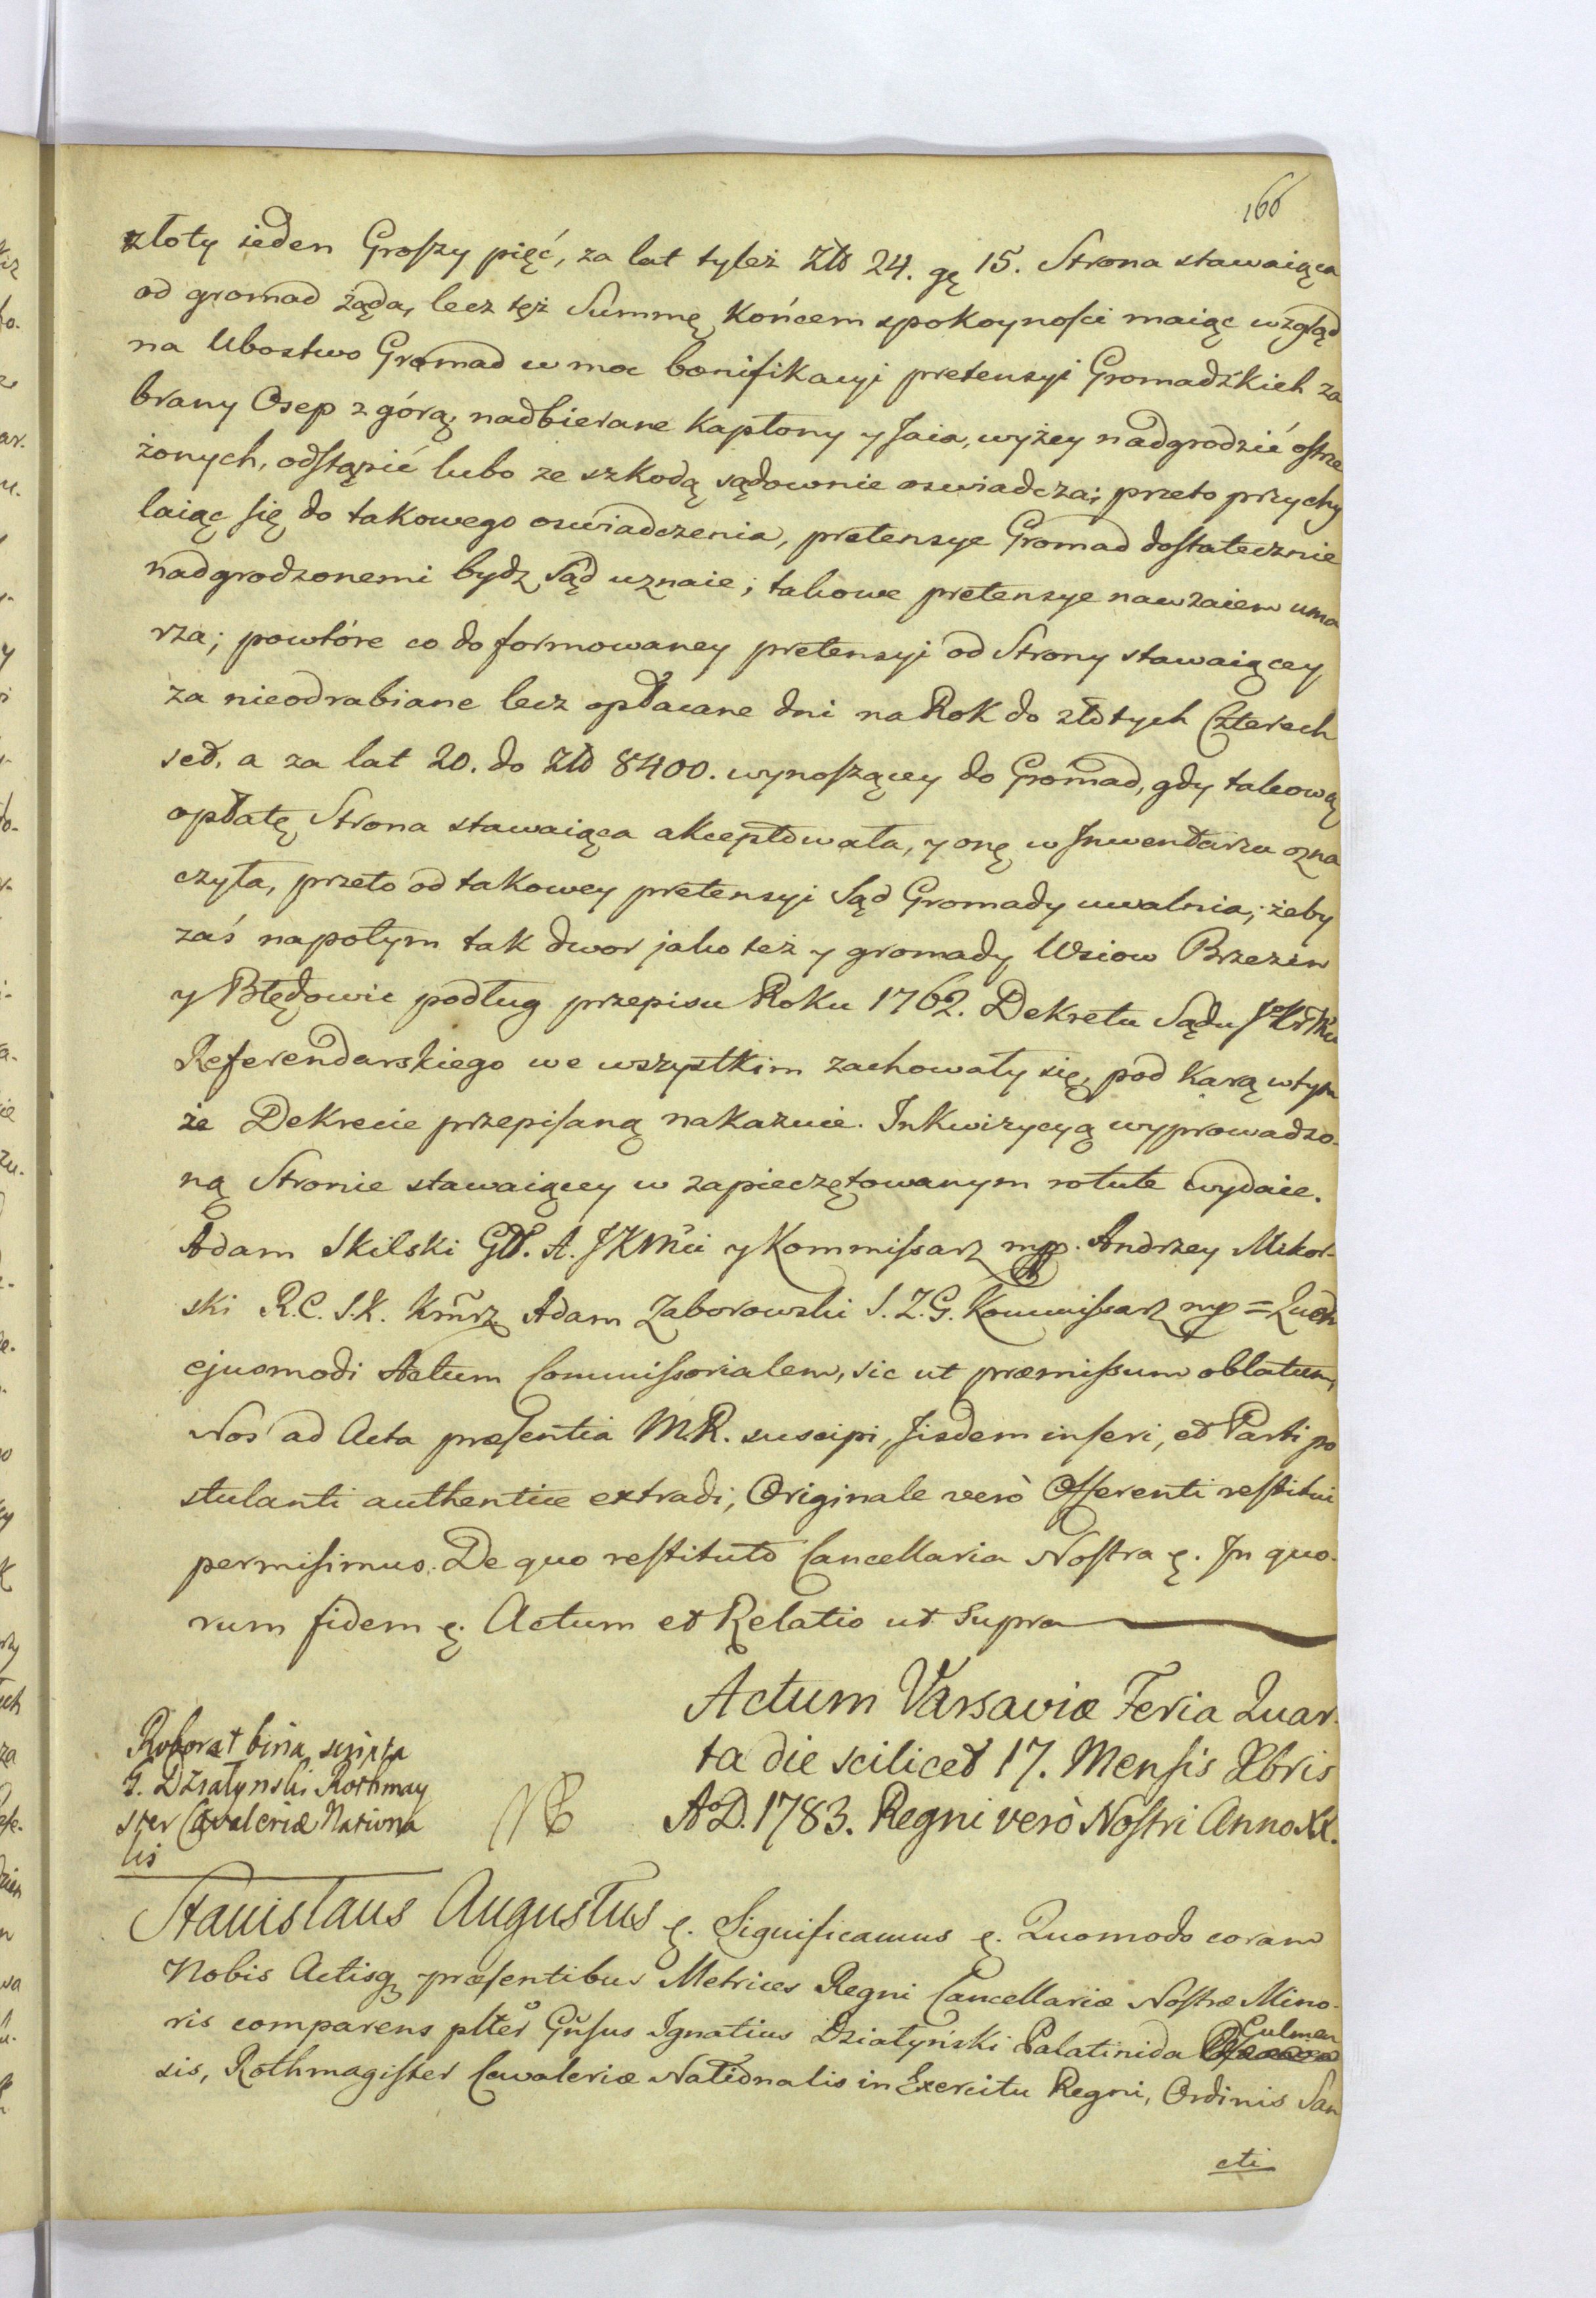 166
złoty ieden Groszy pięć, za lat tyleż Złł 24. gę 15. Strona stawaiąca
od gromad żąda, lecz tęż Summę końcem spokoyności maiąc wzgląd
na Ubostwo Gromad w moc bonifikacyi pretensyi Gromadzkich za
brany Osep z górą, nadbierane kapłony y Jaia, wyżey nadgrodzić ostrze
żonych, odstąpić lubo ze szkodą sądownie oswiadcza; przeto przychy
laiąc się do takowego oswiadczenia, pretensye Gromad dostatecznie
nadgrodzonemi bydz Sąd uznaie; takowe pretensye nawzaiem uma
rza; powtóre co do formowaney pretensyi od Strony stawaiącey
za nieodrabiane lecz opłacane dni na Rok do złotych Czterech
set, a za lat 20. do Złł 8400. wynoszącey do Gromad, gdy takową
opłatę Strona stawaiąca akceptowała, y onę w Inwentarzu ozna
czyła, przeto od takowey pretensyi Sąd Gromady uwalnia; żeby
zaś napotym tak dwor jako też y gromady Wsiow Brzezin
y Błędowic podług przepisu Roku 1762. Dekretu Sądu
Referendarskiego we wszystkim zachowały się, pod karą wtym
że Dekrecie przepisaną nakazuie. Inkwizycyą wyprowadzo-
ną Stronie stawaiącey w zapieczętowanym rotule wydaie.
Adam Skilski G. A. JKMci y Kommissarz mpp. Andrzey Mikor-
ski R.C. S.K. Kmrz Adam Zaborowski S. Z. G. Kommissarz mp = Quod
ejusmodi Actum Commissorialem, sic ut præmissum oblatum,
Nos ad Acta præsentia M.R. suscipi, Jisdem inseri, et Parti po
stulanti authentice extradi, Originale verò Offerenti restitui
permisimus. De quo restituto Cancellaria Nostra ę. In quo-
rum fidem ę. Actum et Relatio ut Supra
Actum Varsaviæ Feria Quar-
ta die scilicet 17. Mensis Xbris
A°D. 1783. Regni verò Nostri Anno XX.
Roborat bina scripta
G. Dzialynski Rothmay
ster Cavaleriæ Nationa
lis
NB
Stanislaus Augustus ę. Significamus ę. Quomodo coram
Nobis Actisq præsentibus Metrices Regni Cancellariæ Nostræ Mino-
ris comparens plter Gnsus Ignatius Działyński Palatinida Culmen
sis, Rothmagister Cavaleriæ Nationalis in Exercitu Regni, Ordinis San
cti